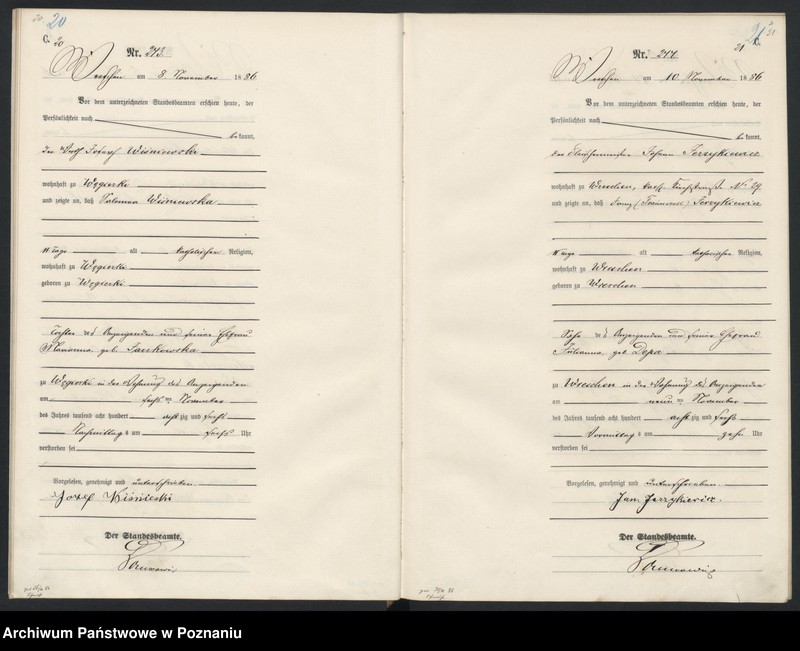 20
20
C. 20
Nr. 213.
Wreschen am 8 November 1886
Vor dem unterzeichneten Standesbeamten erschien heute, der
Persönlichkeit nach
bekannt,
Der Joseph Wiśniewski
wohnhaft zu Węgierki
und zeigte an, daß Salomea Wiśniewska
11 Tage alt katholischer Religion,
wohnhaft zu Węgierki
geboren zu Węgierki
Tochter des Anzeigenden und seiner Ehefrau
Marianna geb. Jankowska
zu Węgierki in der Wohnung des Anzeigenden
am sechsten November
des Jahres tausend acht hundert achtzig und sechs
Nachmittags um sechs Uhr
verstorben sei
Vorgelesen, genehmigt und unterschrieben
Józef Wiśnieski
Der Standesbeamte.
21
21 C.
Nr. 214.
Wreschen am 10 November 1886
Vor dem unterzeichneten Standesbeamten erschien heute, der
Persönlichkeit nach
bekannt,
der Fleischermeister Johann Jerzykiewicz
wohnhaft zu Wreschen, No 29.
und zeigte an, daß Franz Jerzykiewicz
Tage alt katholischer Religion,
wohnhaft zu Wreschen
geboren zu Wreschen
Sohn des Anzeigenden und seiner Ehefrau
Julianna geb. Depa
zu Wreschen in der Wohnung des Anzeigenden
am neunten November
des Jahres tausend acht hundert achtzig und sechs
Vormittags um zehn Uhr
verstorben sei
Vorgelesen, genehmigt und unterschrieben
Jan Jerzykiewicz.
Der Standesbeamte.
Archiwum Państwowe w Poznaniu